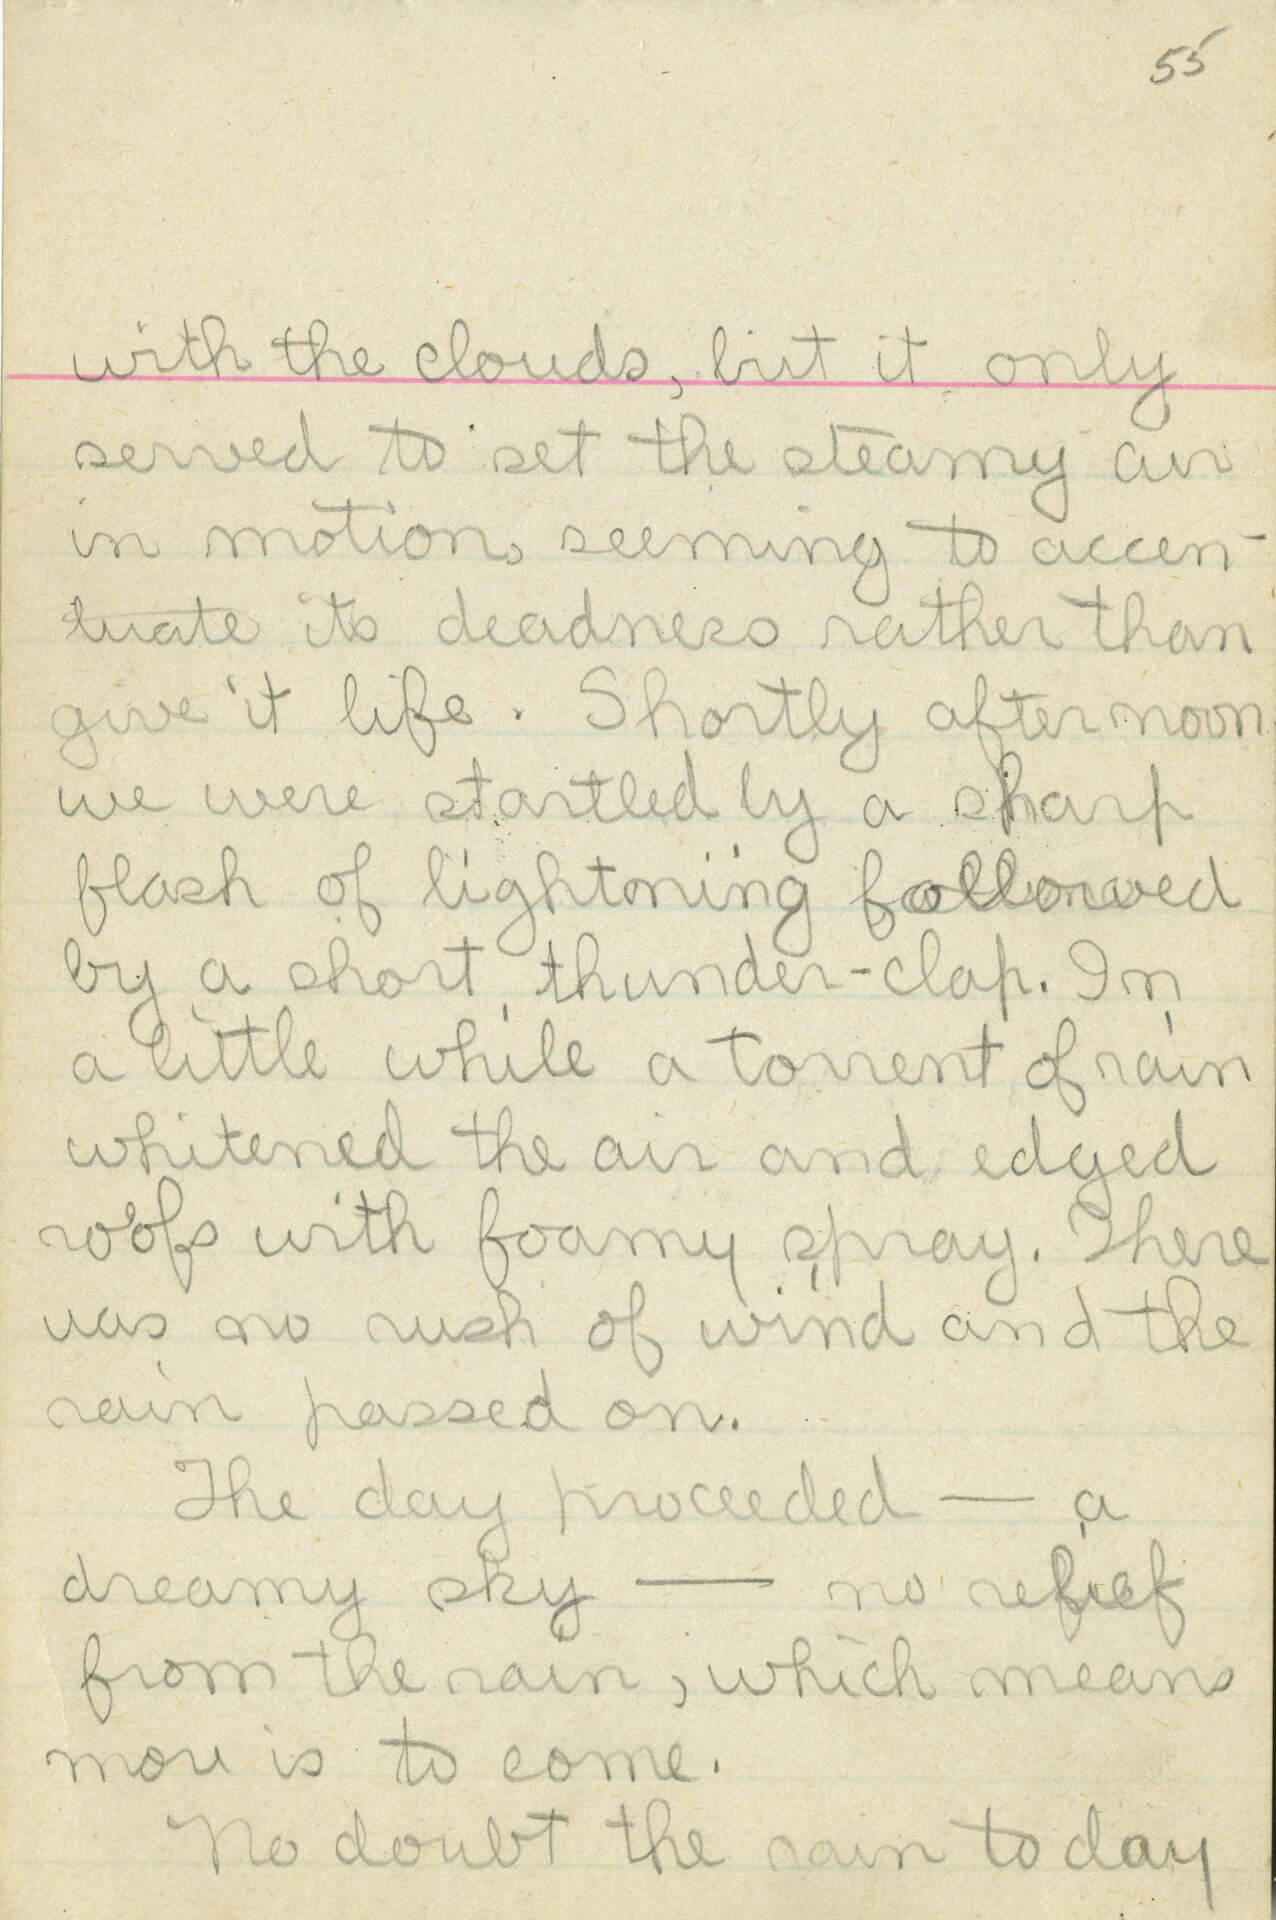 55
with the clouds, but it only
served to set the steamy air
in motion, seeming to accen-
tuate its deadness rather than
give it life. Shortly after noon
we were startled by a sharp
flash of lightning followed
by a short, thunder-clap. In
a little while a torrent of rain
whitened the air and edged
roofs with foamy spray. There
was no rush of wind and the
rain passed on.
The day proceeded — a
dreamy sky — no relief
from the rain, which means
more is to come.
No doubt the rain today